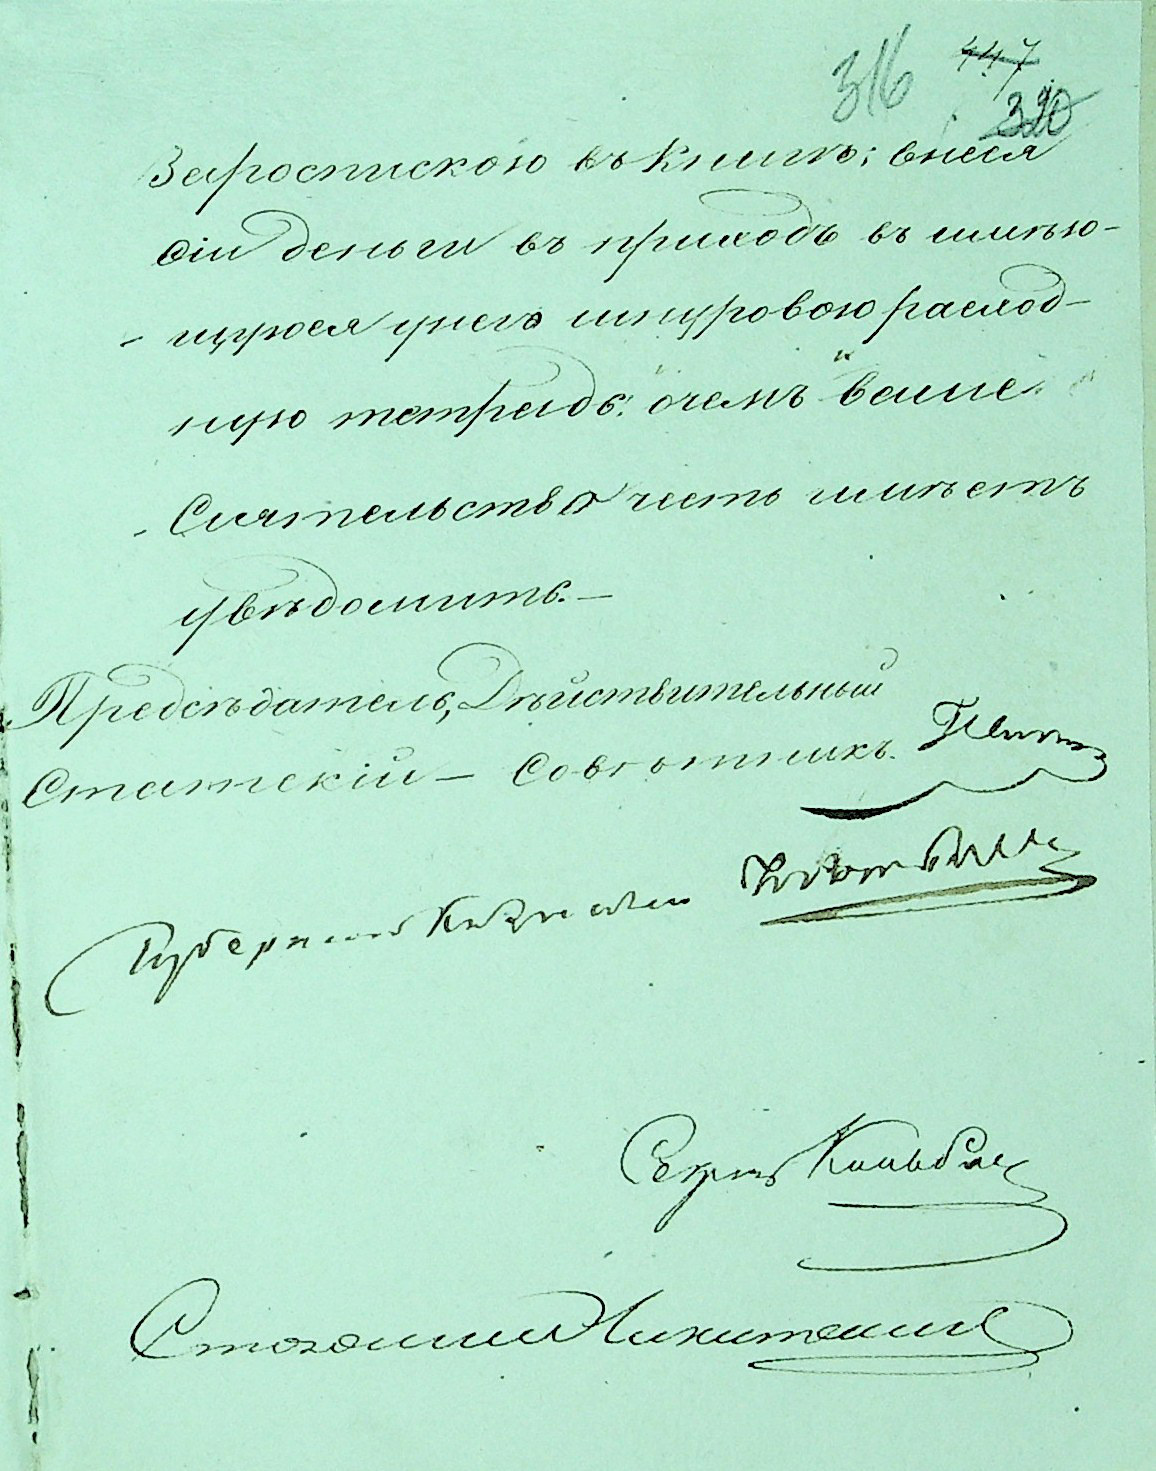 316 447
320
Зароспискою въ книгѣ; внеся
сіи деньги въ приходъ въ имѣю-
щуюся унего шнуровою расход-
ную тетрадь: очемъ и ваше
Сиятельство честь имѣетъ
увѣдомить.—
Предсѣдатель, Дѣйствительный
Статскій — Совѣтникъ.
Губернскій Казначей
Секрет
Столоначальникъ